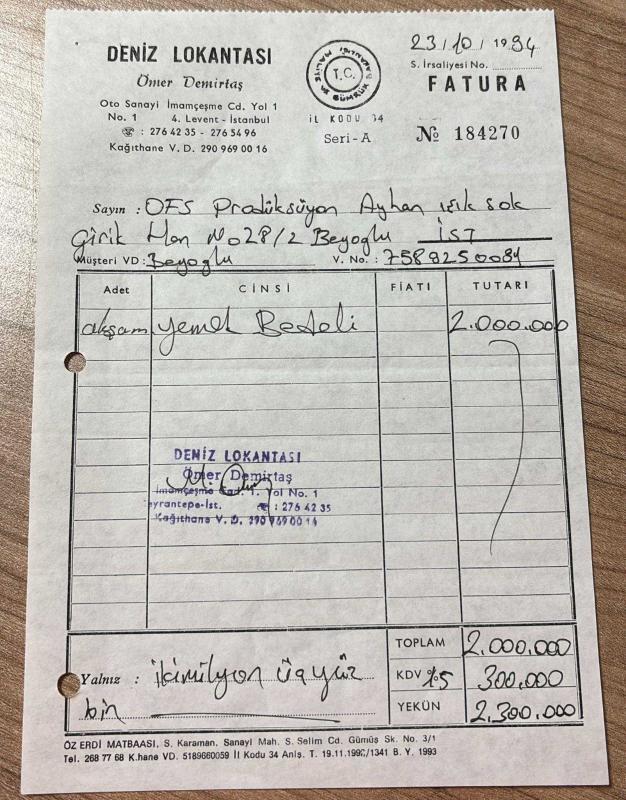 DENİZ LOKANTASI
Ömer Demirtaş
Oto Sanayi İmamçeşme Cd. Yol 1
No. 1 4. Levent - İstanbul
☎ : 276 42 35 - 276 54 96
Kağıthane V. D. 290 969 00 16
T.C.
MALİYE VE GÜMRÜK BAKANLIĞI
İL KODU 34
Seri - A
23/10/1994
S. İrsaliyesi No.
FATURA
№ 184270
Sayın : OFS Prodüksüyon Ayhan ışık sok
Girik Han No 28/2 Beyoglu İST
Müşteri VD: Beyoglu V. No.: 7589250084
Adet CİNSİ FİATI TUTARI
akşam yemek Bedeli 2.000.000
DENİZ LOKANTASI
Ömer Demirtaş
İmamçeşme Cad. 1. Yol No. 1
eyrantepe-İst. ☎ : 276 42 35
Kağıthane V. D. 290 969 00 16
TOPLAM 2.000.000
Yalnız : ikimilyon üçyüz KDV %15 300.000
bin YEKÜN 2.300.000
ÖZ ERDİ MATBAASI, S. Karaman. Sanayi Mah. S. Selim Cd. Gümüş Sk. No. 3/1
Tel. 268 77 68 K.hane VD. 5189660059 İl Kodu 34 Anlş. T. 19.11.1990/1341 B. Y. 1993